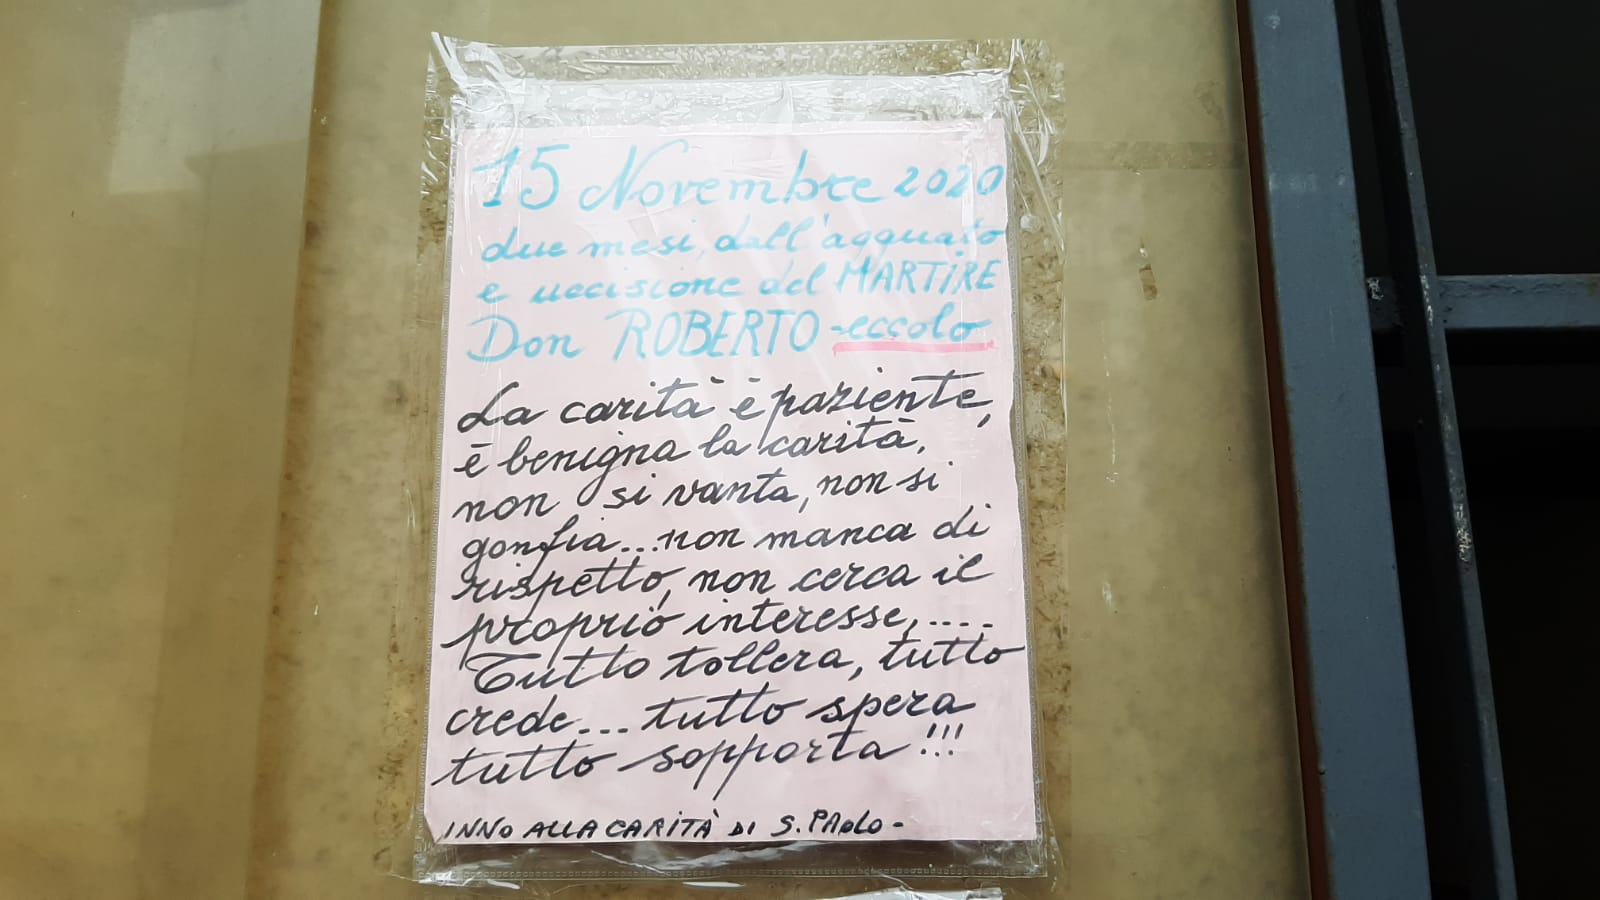 15 Novembre 2020
due mesi, dall'agguato
e uccisione del MARTIRE
Don ROBERTO - eccolo
La carità è paziente,
è benigna la carità,
non si vanta, non si
gonfia...non manca di
rispetto, non cerca il
proprio interesse,....
Tutto tollera, tutto
crede... tutto spera
tutto sopporta!!!
INNO ALLA CARITÀ DI S. PAOLO -